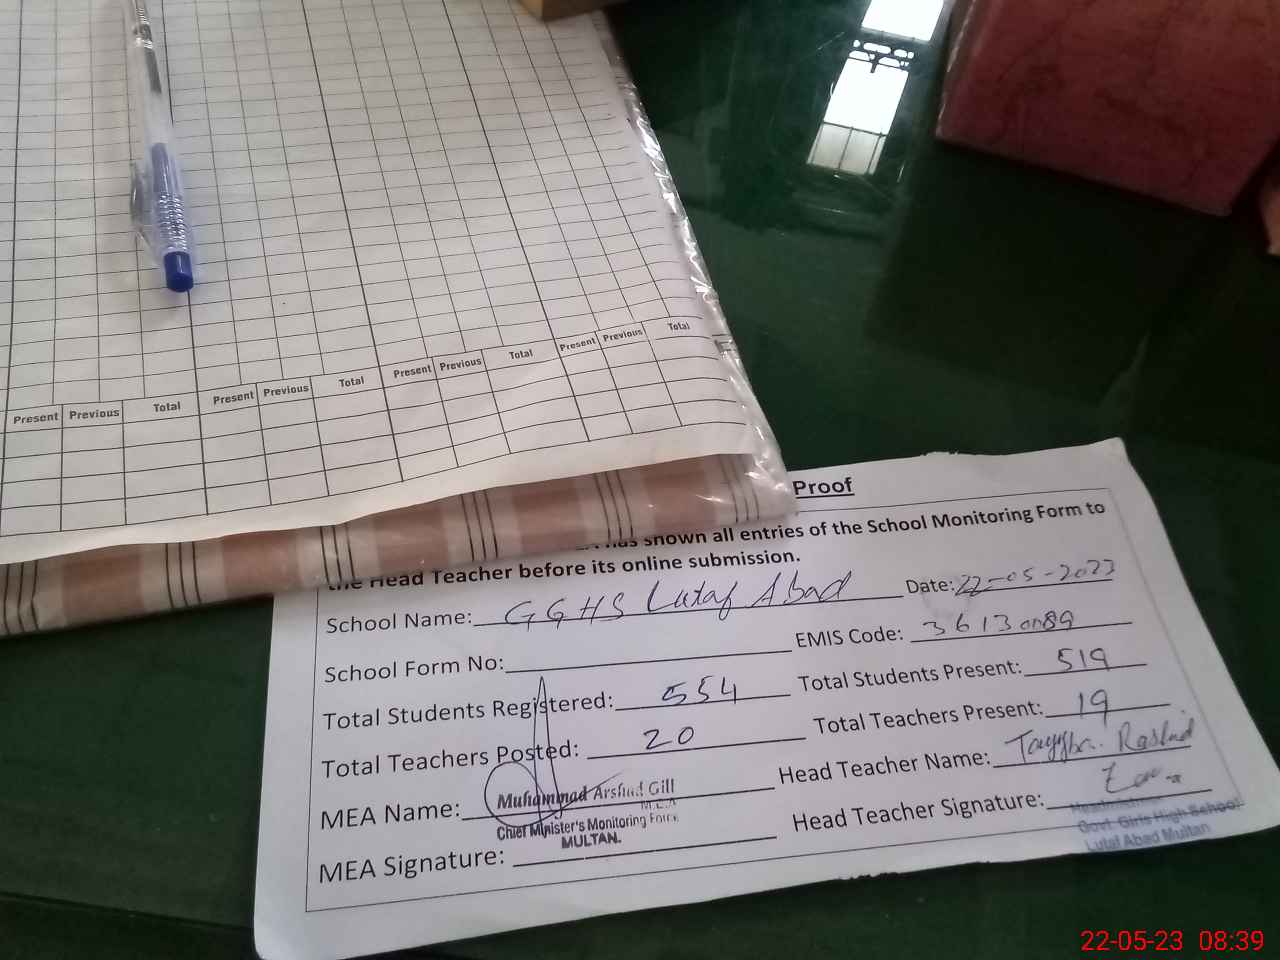 Present Previous Total Present Previous Total Present Previous Total Present Previous Total
Proof
has shown all entries of the School Monitoring Form to
the Head Teacher before its online submission.
School Name: GGHS Lutaf Abad Date: 22-05-2023
School Form No: EMIS Code:
Total Students Registered: 554 Total Students Present: 519
Total Teachers Posted: 20 Total Teachers Present: 19
MEA Name: Muhammad Arshad Gill Head Teacher Name: Tayyba Rashid
M.E.A
Chief Minister's Monitoring Force
MULTAN.
MEA Signature: Head Teacher Signature:
Govt. Girls High School
Lutaf Abad Multan
22-05-23 08:39